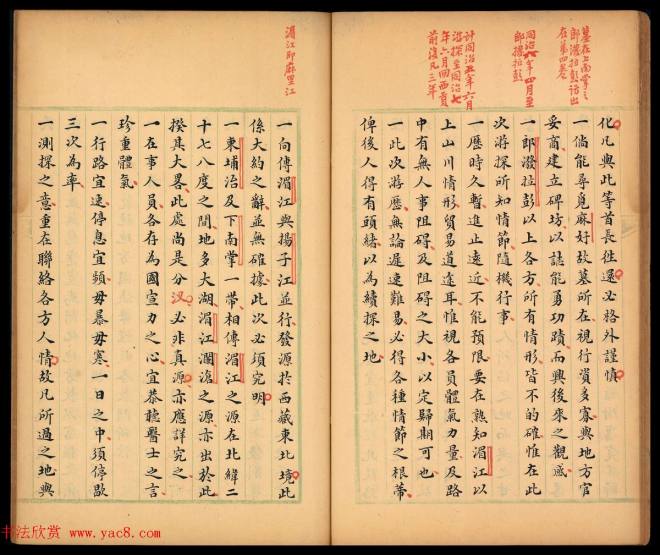 墓在上南掌之
郎潑拉彭訪出
在第四卷
同治六年四月至
郎撥拉彭
計同治五年六月
游探至同治七
年六月回西貢
前後凡三年
化凡與此等首長往還必格外謹慎
一倘能尋覓麻好故墓所在視行資多寡與地方官
妥商建立碑坊以誌能勇功蹟而興後來之觀感
一郎潑拉彭以上各方所有情形皆不的確惟在此
次游探所知情節隨機行事
一歷時久暫進止遠近不能預限要在熟知湄江以
上山川情形貿易道途耳惟視各員體氣力量及路
中有無人事阻碍及阻碍之大小以定歸期可也
一此次游歷無論遲速難易必得各種情節之根蒂
俾後人得有頭緒以為續探之地
湄江即蔴里江
一向傳湄江與揚子江並行發源於西藏東北境此
係大約之辭並無確據此次必須究明
一東埔治及下南掌一帶相傳湄江之源在北緯二
十七八度之間地多大湖湄江瀾滄之源亦出於此
揆其大畧此處尚是分汊必非真源亦應詳究之
一在事人員各存為國宣力之心宜恭聽醫士之言
珍重體氣
一行路宜速停息宜頻毋暴毋寒一日之中須停歇
三次為率
一測探之意重在聯絡各方人情故凡所過之地與
书法欣赏 www.yac8.com